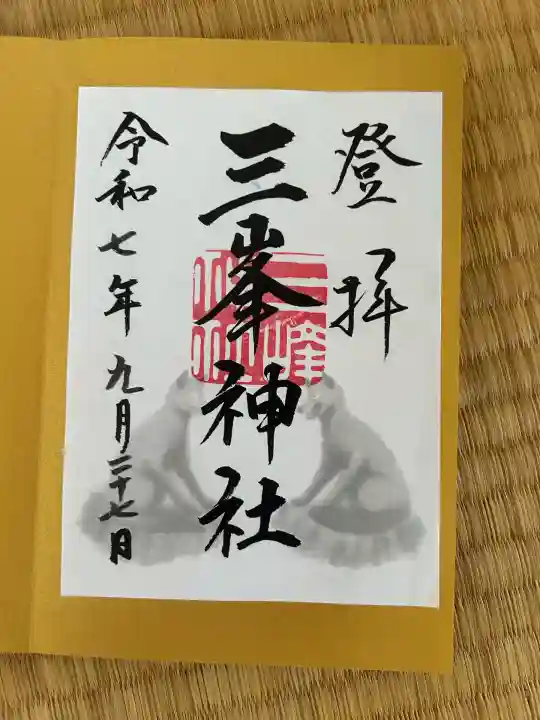 登拝
三峯神社
令和七年九月二十七日